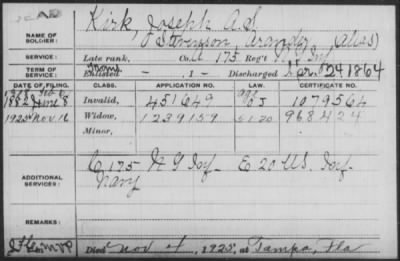 NAME OF SOLDIER: Kirk, Joseph A.S.
(alias)
SERVICE: Late rank, Co. 175 Reg't N.Y. Inf.
TERM OF SERVICE: Enlisted , 1 Discharged 24 1864
DATE OF FILING. CLASS. APPLICATION NO. LAW. CERTIFICATE NO.
1882 June 8 Invalid, 451649 1079564
1925 Nov. 16 Widow, 1239159 5-1-20 968424
Minor,
ADDITIONAL SERVICES: C 175 N Y Inf. E 20 U.S. Inf.
Navy
REMARKS:
Died Nov 4, 1925, at Tampa, Fla